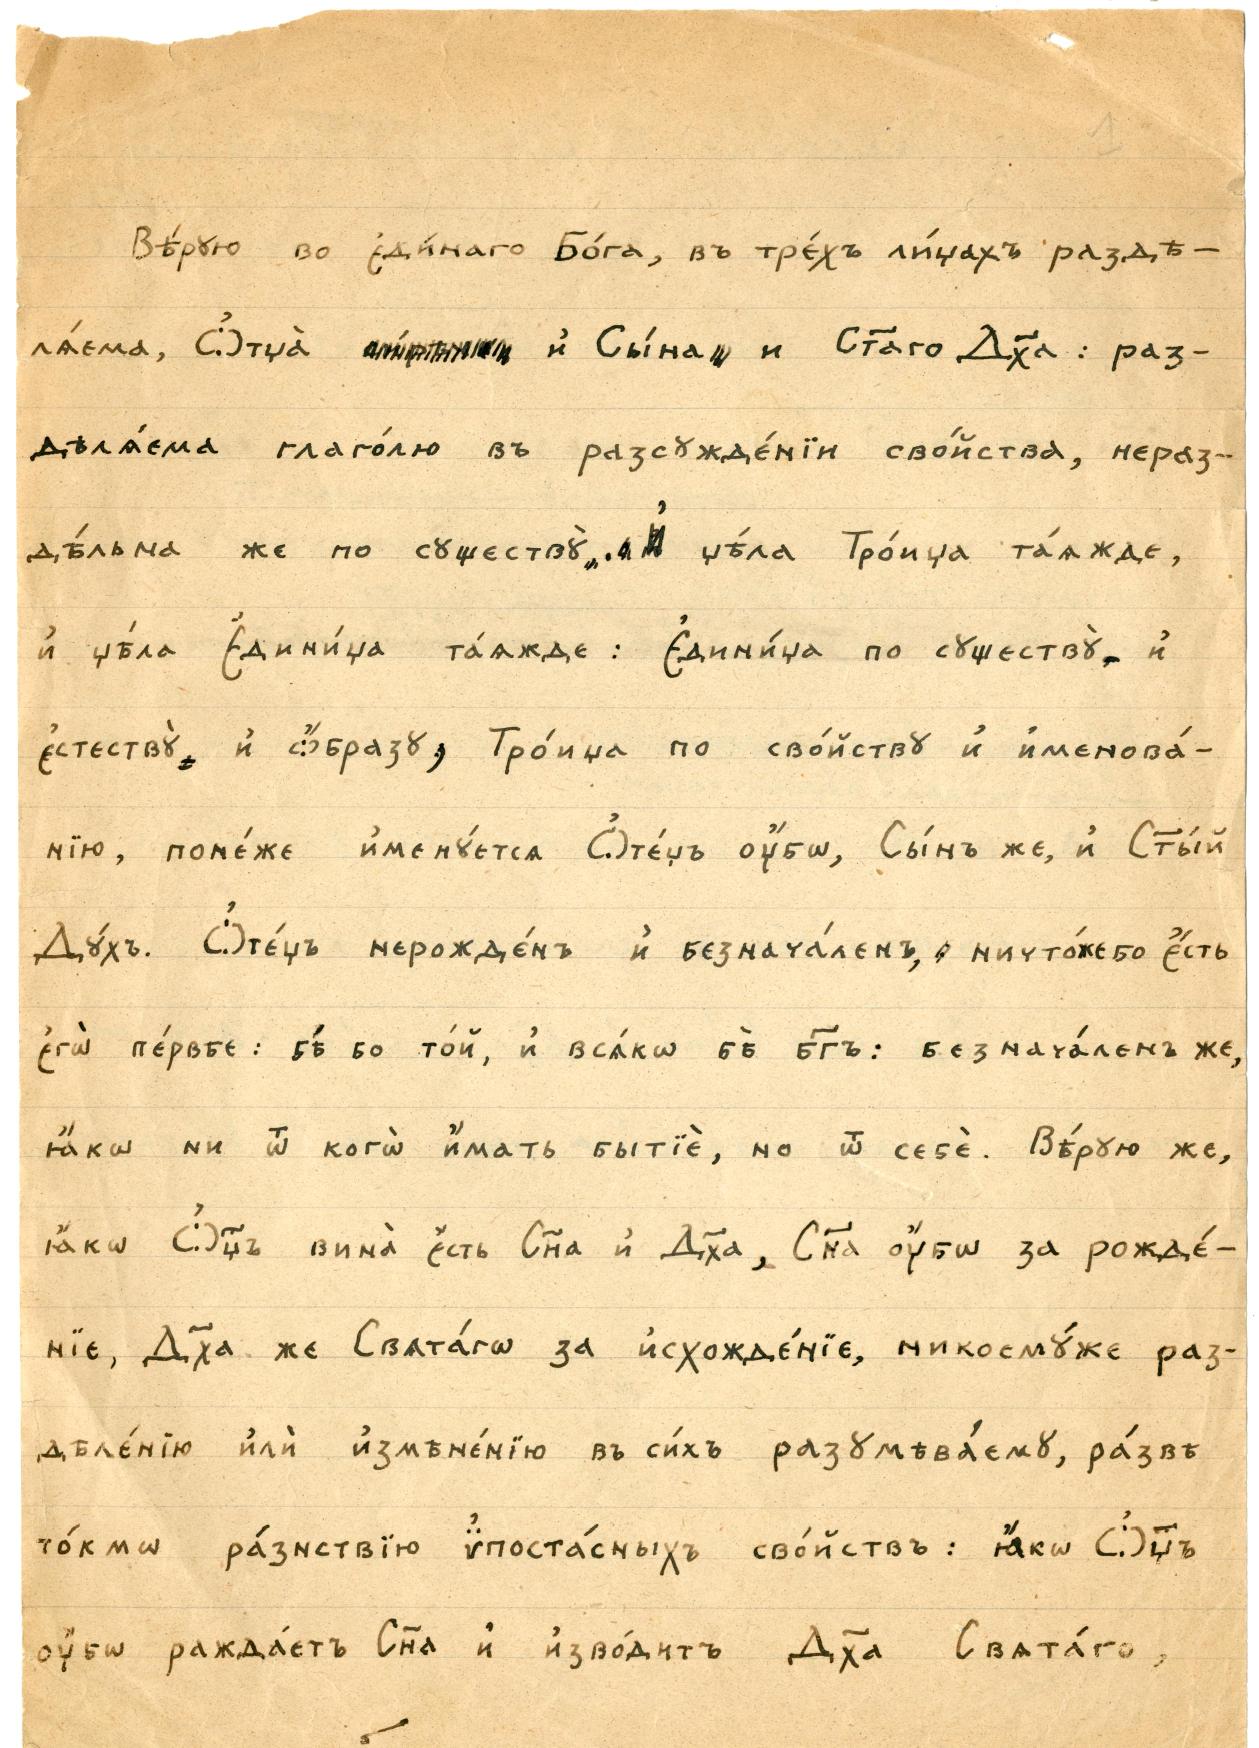 1
Вѣ́рꙋю во є҆ди́наго Бо́га, въ тре́хъ ли́цахъ раздѣ-
лѧ́ема, Ѻ҆тца̀ и҆ Сы́на и Ст҃аго Дх҃а : раз-
дѣлѧ́ема глаго́лю въ разсꙋжде́нїи сво́йства, нераз-
дѣ́льна же по сꙋществꙋ̀. И҆ цѣ́ла Тро́ица та́ѧжде,
и҆ цѣ́ла Є҆дини́ца та́ѧжде : Є҆дини́ца по сꙋществꙋ̀, и҆
є҆стествꙋ̀, и҆ ѻ҆́бразꙋ, Тро́ица по сво́йствꙋ и҆ и҆менова́-
нїю, поне́же и҆менꙋ́етсѧ Ѻ҆те́цъ ᲂу҆́бѡ, Сы́нъ же, и҆ Ст҃ы́й
Дꙋ́хъ. Ѻ҆те́цъ нерожде́нъ и҆ безнача́ленъ, ничто́жебо є҆́сть
є҆гѡ̀ пе́рвѣе : бѣ́ бо то́й, и҆ всѧ́кѡ бѣ̀ бг҃ъ : безнача́ленъ же,
ꙗ҆́кѡ ни ѿ когѡ̀ и҆́мать бытїѐ, но ѿ себѐ. Вѣ́рꙋю же,
ꙗ҆́кѡ Ѻ҆ц҃ъ вина̀ є҆́сть Сн҃а и҆ Дх҃а, Сн҃а ᲂу҆́бѡ за рожде́-
нїе, Дх҃а же Свѧта́гѡ за и҆схожде́нїе, никоемꙋ́же раз-
дѣле́нїю и҆лѝ и҆змѣне́нїю въ си́хъ разꙋмѣва́емꙋ, ра́звѣ
то́кмѡ ра́знствїю ѵ҆поста́сныхъ сво́йствъ : ꙗ҆́кѡ Ѻ҆ц҃ъ
ᲂу҆́бѡ ражда́етъ Сн҃а и҆ и҆зво́дитъ Дх҃а Свѧта́го,